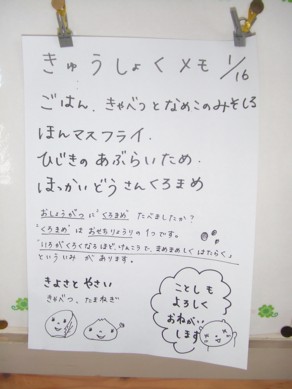 きゅうしょくメモ 1/16
ごはん、きゃべつとなめこのみそしる
ほんマスフライ、
ひじきのあぶらいため、
ほっかいどうさんくろまめ
おしょうがつに"くろまめ"たべましたか?
"くろまめ"はおせちりょうりの1つです。
"いろがくろくなるほど、けんこうで、まめまめしくはたらく"
といういみがあります。
きよさとやさい
きゃべつ、たまねぎ
ことしも
よろしく
おねがい
します